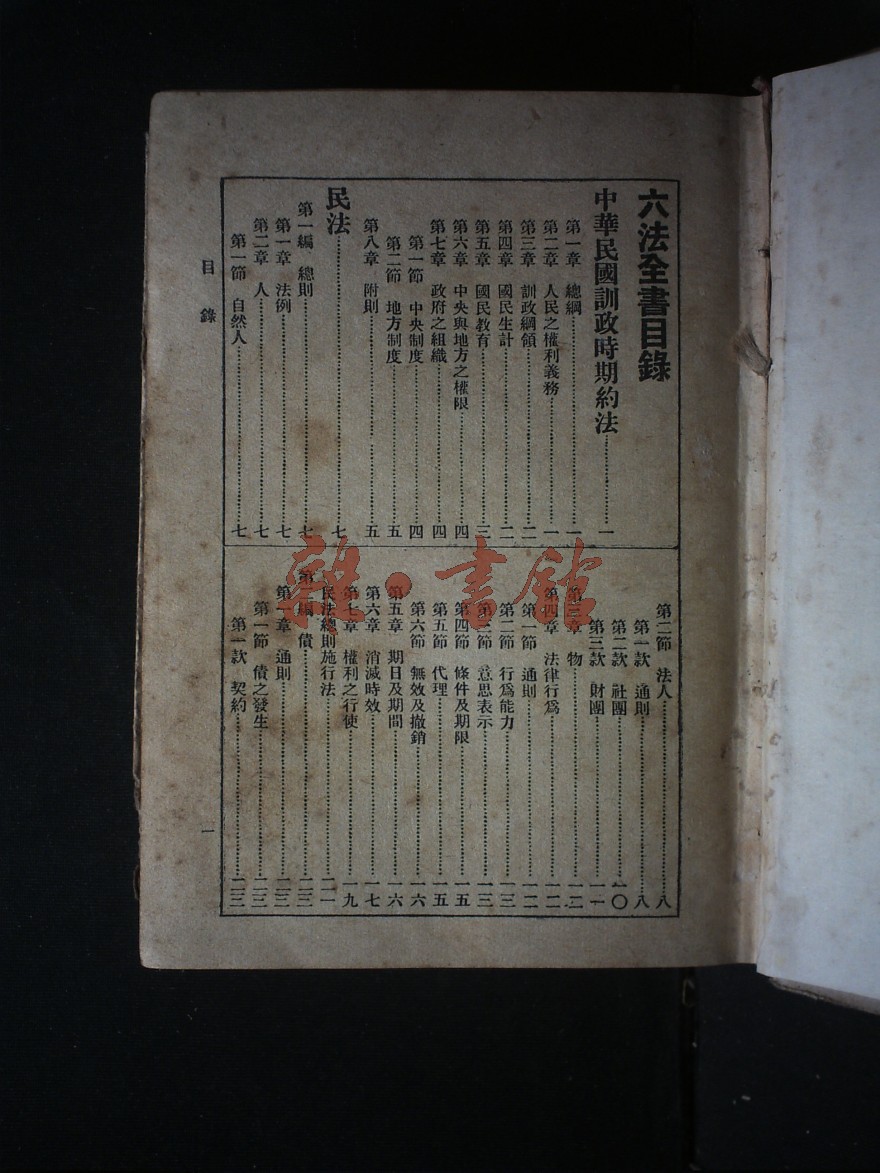 六法全書目錄
中華民國訓政時期約法……一
第一章 總綱……一
第二章 人民之權利義務……一
第三章 訓政綱領……二
第四章 國民生計……二
第五章 國民教育……三
第六章 中央與地方之權限……四
第七章 政府之組織……四
第一節 中央制度……四
第二節 地方制度……五
第八章 附則……五
民法……七
第一編 總則……七
第一章 法例……七
第二章 人……七
第一節 自然人……七
第二節 法人……八
第一款 通則……八
第二款 社團……一〇
第三款 財團……一一
第三章 物……一二
第四章 法律行爲……一二
第一節 通則……一二
第二節 行爲能力……一三
第三節 意思表示……一三
第四節 條件及期限……一五
第五節 代理……一五
第六節 無效及撤銷……一六
第五章 期日及期間……一六
第六章 消滅時效……一七
第七章 權利之行使……一九
民法總則施行法……二一
第二編 債……二三
第一章 通則……二三
第一節 債之發生……二三
第一款 契約……二三
目錄
一
雜·書館